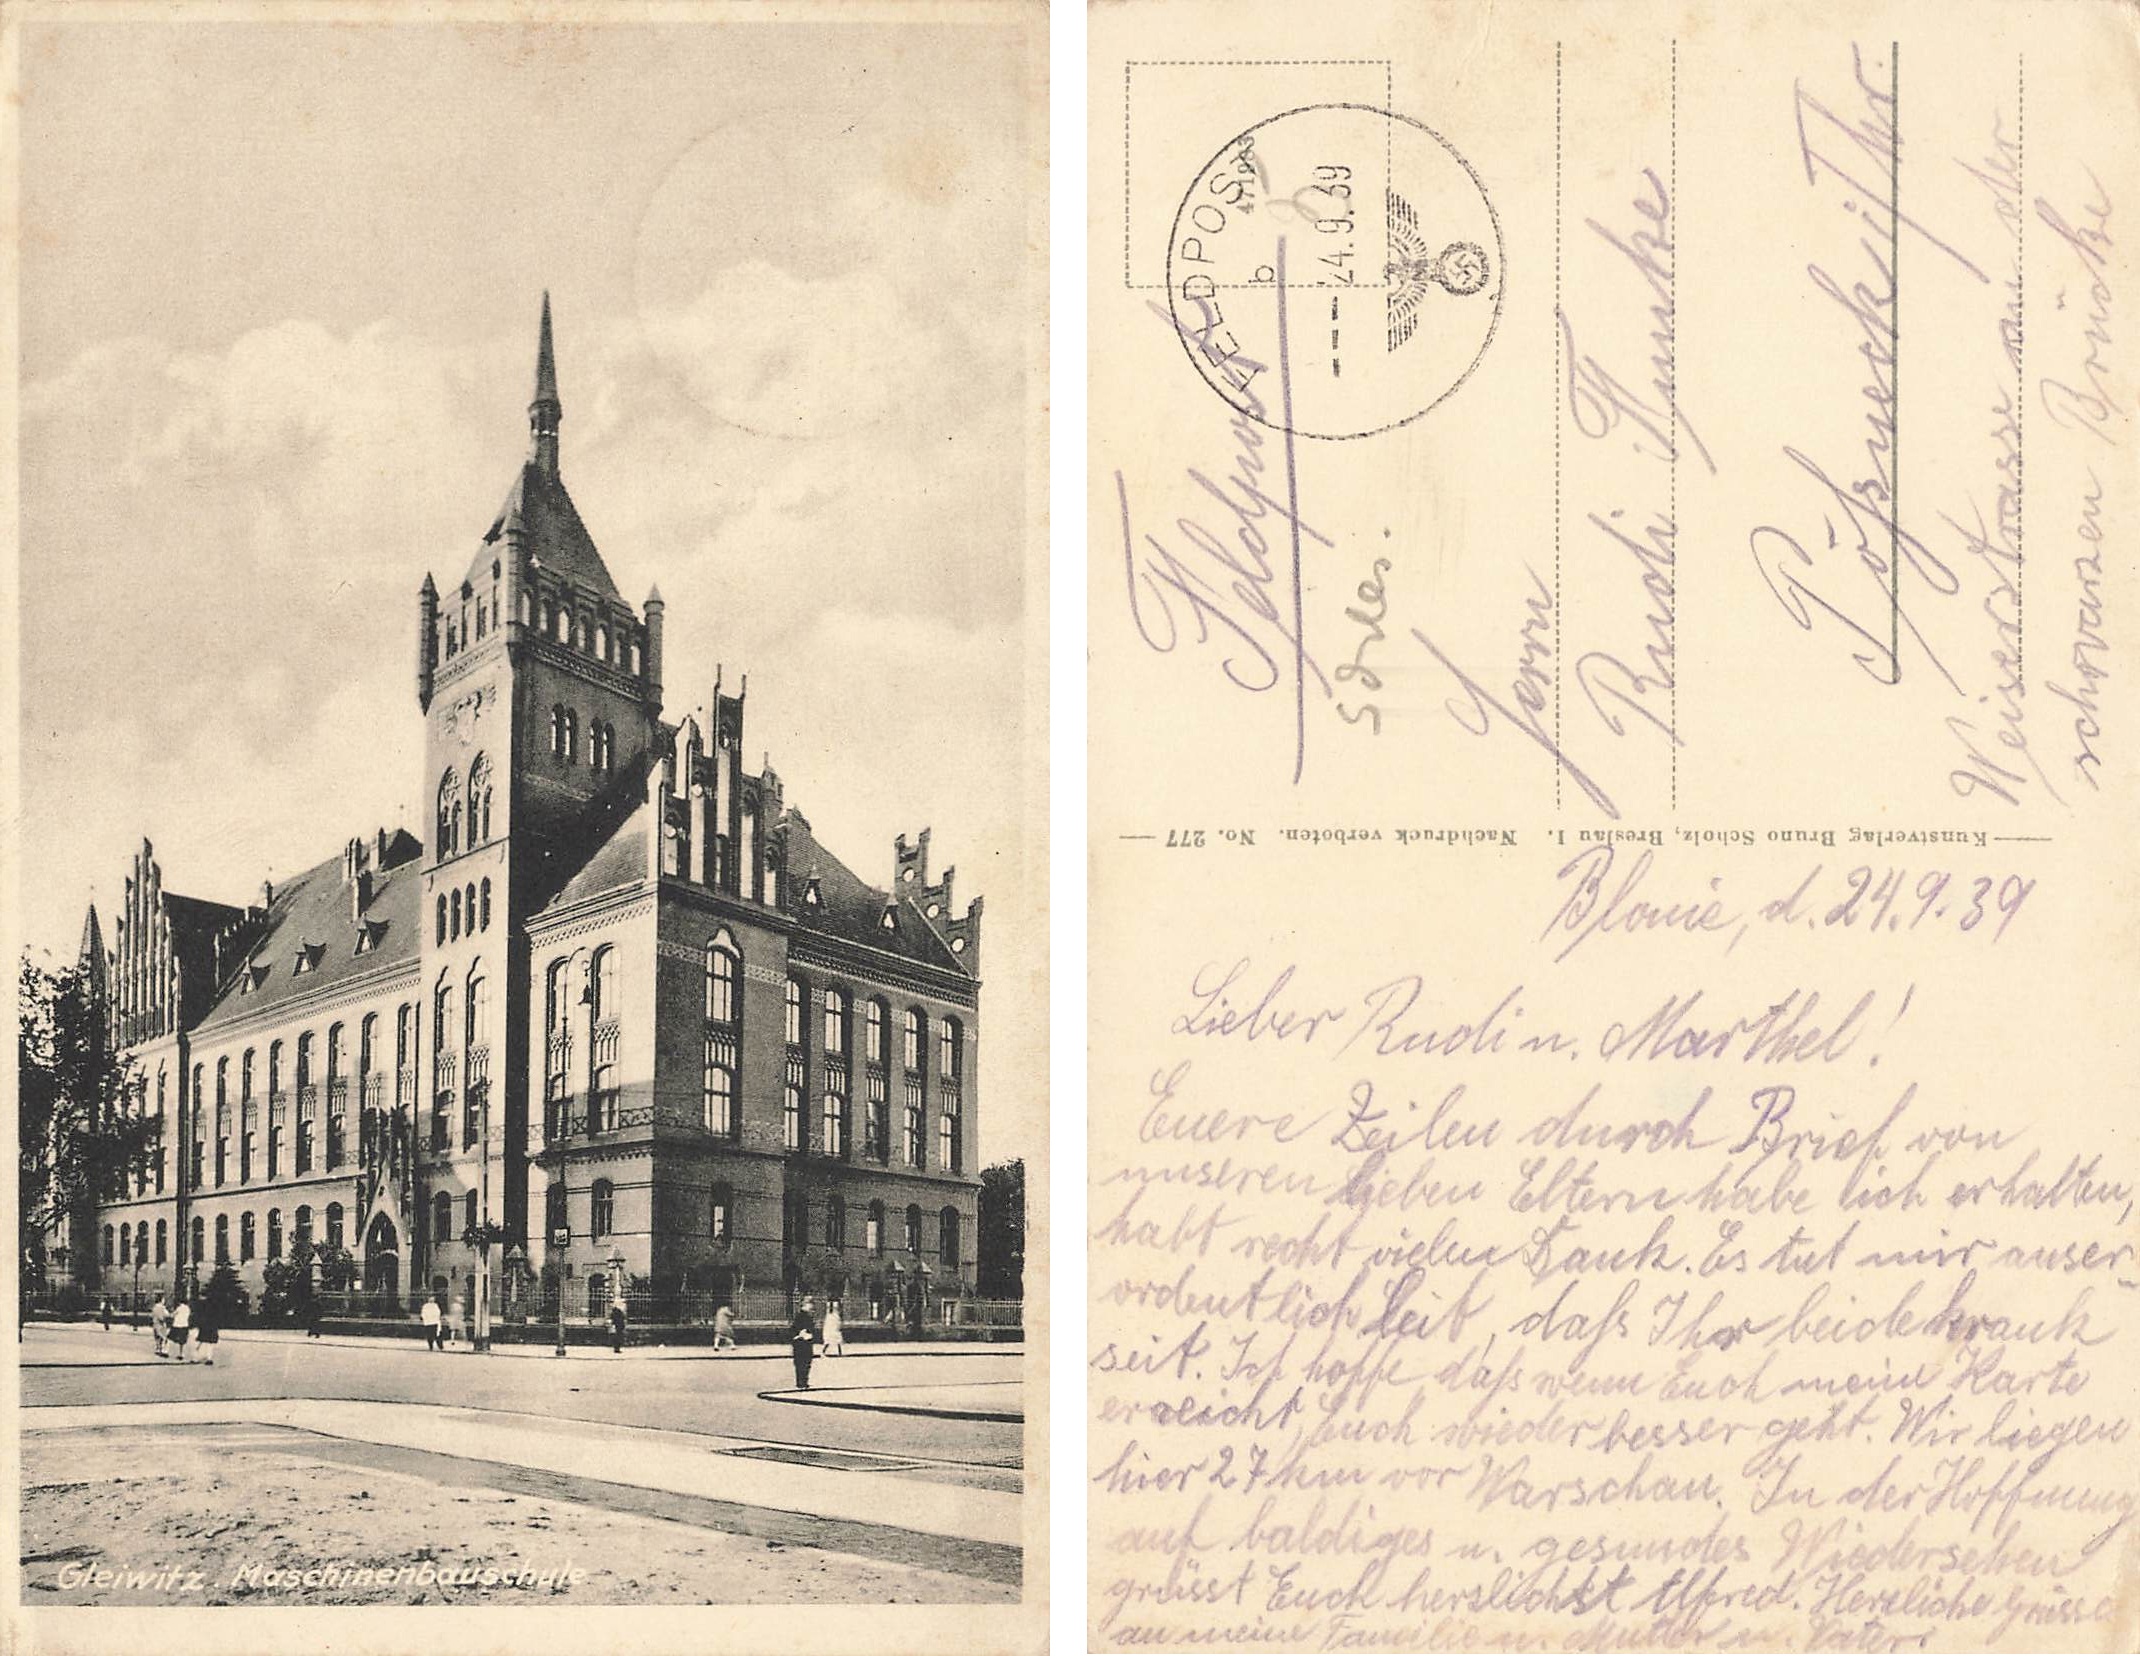 Gleiwitz. Maschinenbauschule
FELDPOST
b
24.9.39
Feldpost
Herrn
Rudi Humke
Pößneck i/Thr.
Weiserstrasse an der
schwarzen Brücke
Kunstverlag Bruno Scholz, Breslau 1. Nachdruck verboten. No. 277
Blonie, d. 24.9.39
Lieber Rudi u. Marthel!
Euere Zeilen durch Brief von
unseren lieben Eltern habe ich erhalten,
habt recht vielen Dank. Es tut mir auser-
ordentlich leit, daß Ihr beide krank
seit. Ich hoffe daß wenn Euch meine Karte
erreicht, Euch wieder besser geht. Wir liegen
hier 27 km vor Warschau. In der Hoffnung
auf baldiges u. gesundes Wiedersehen
grüsst Euch herslichst Alfred. Herzliche Grüsse
an meine Familie u. Mutter u. Vater.